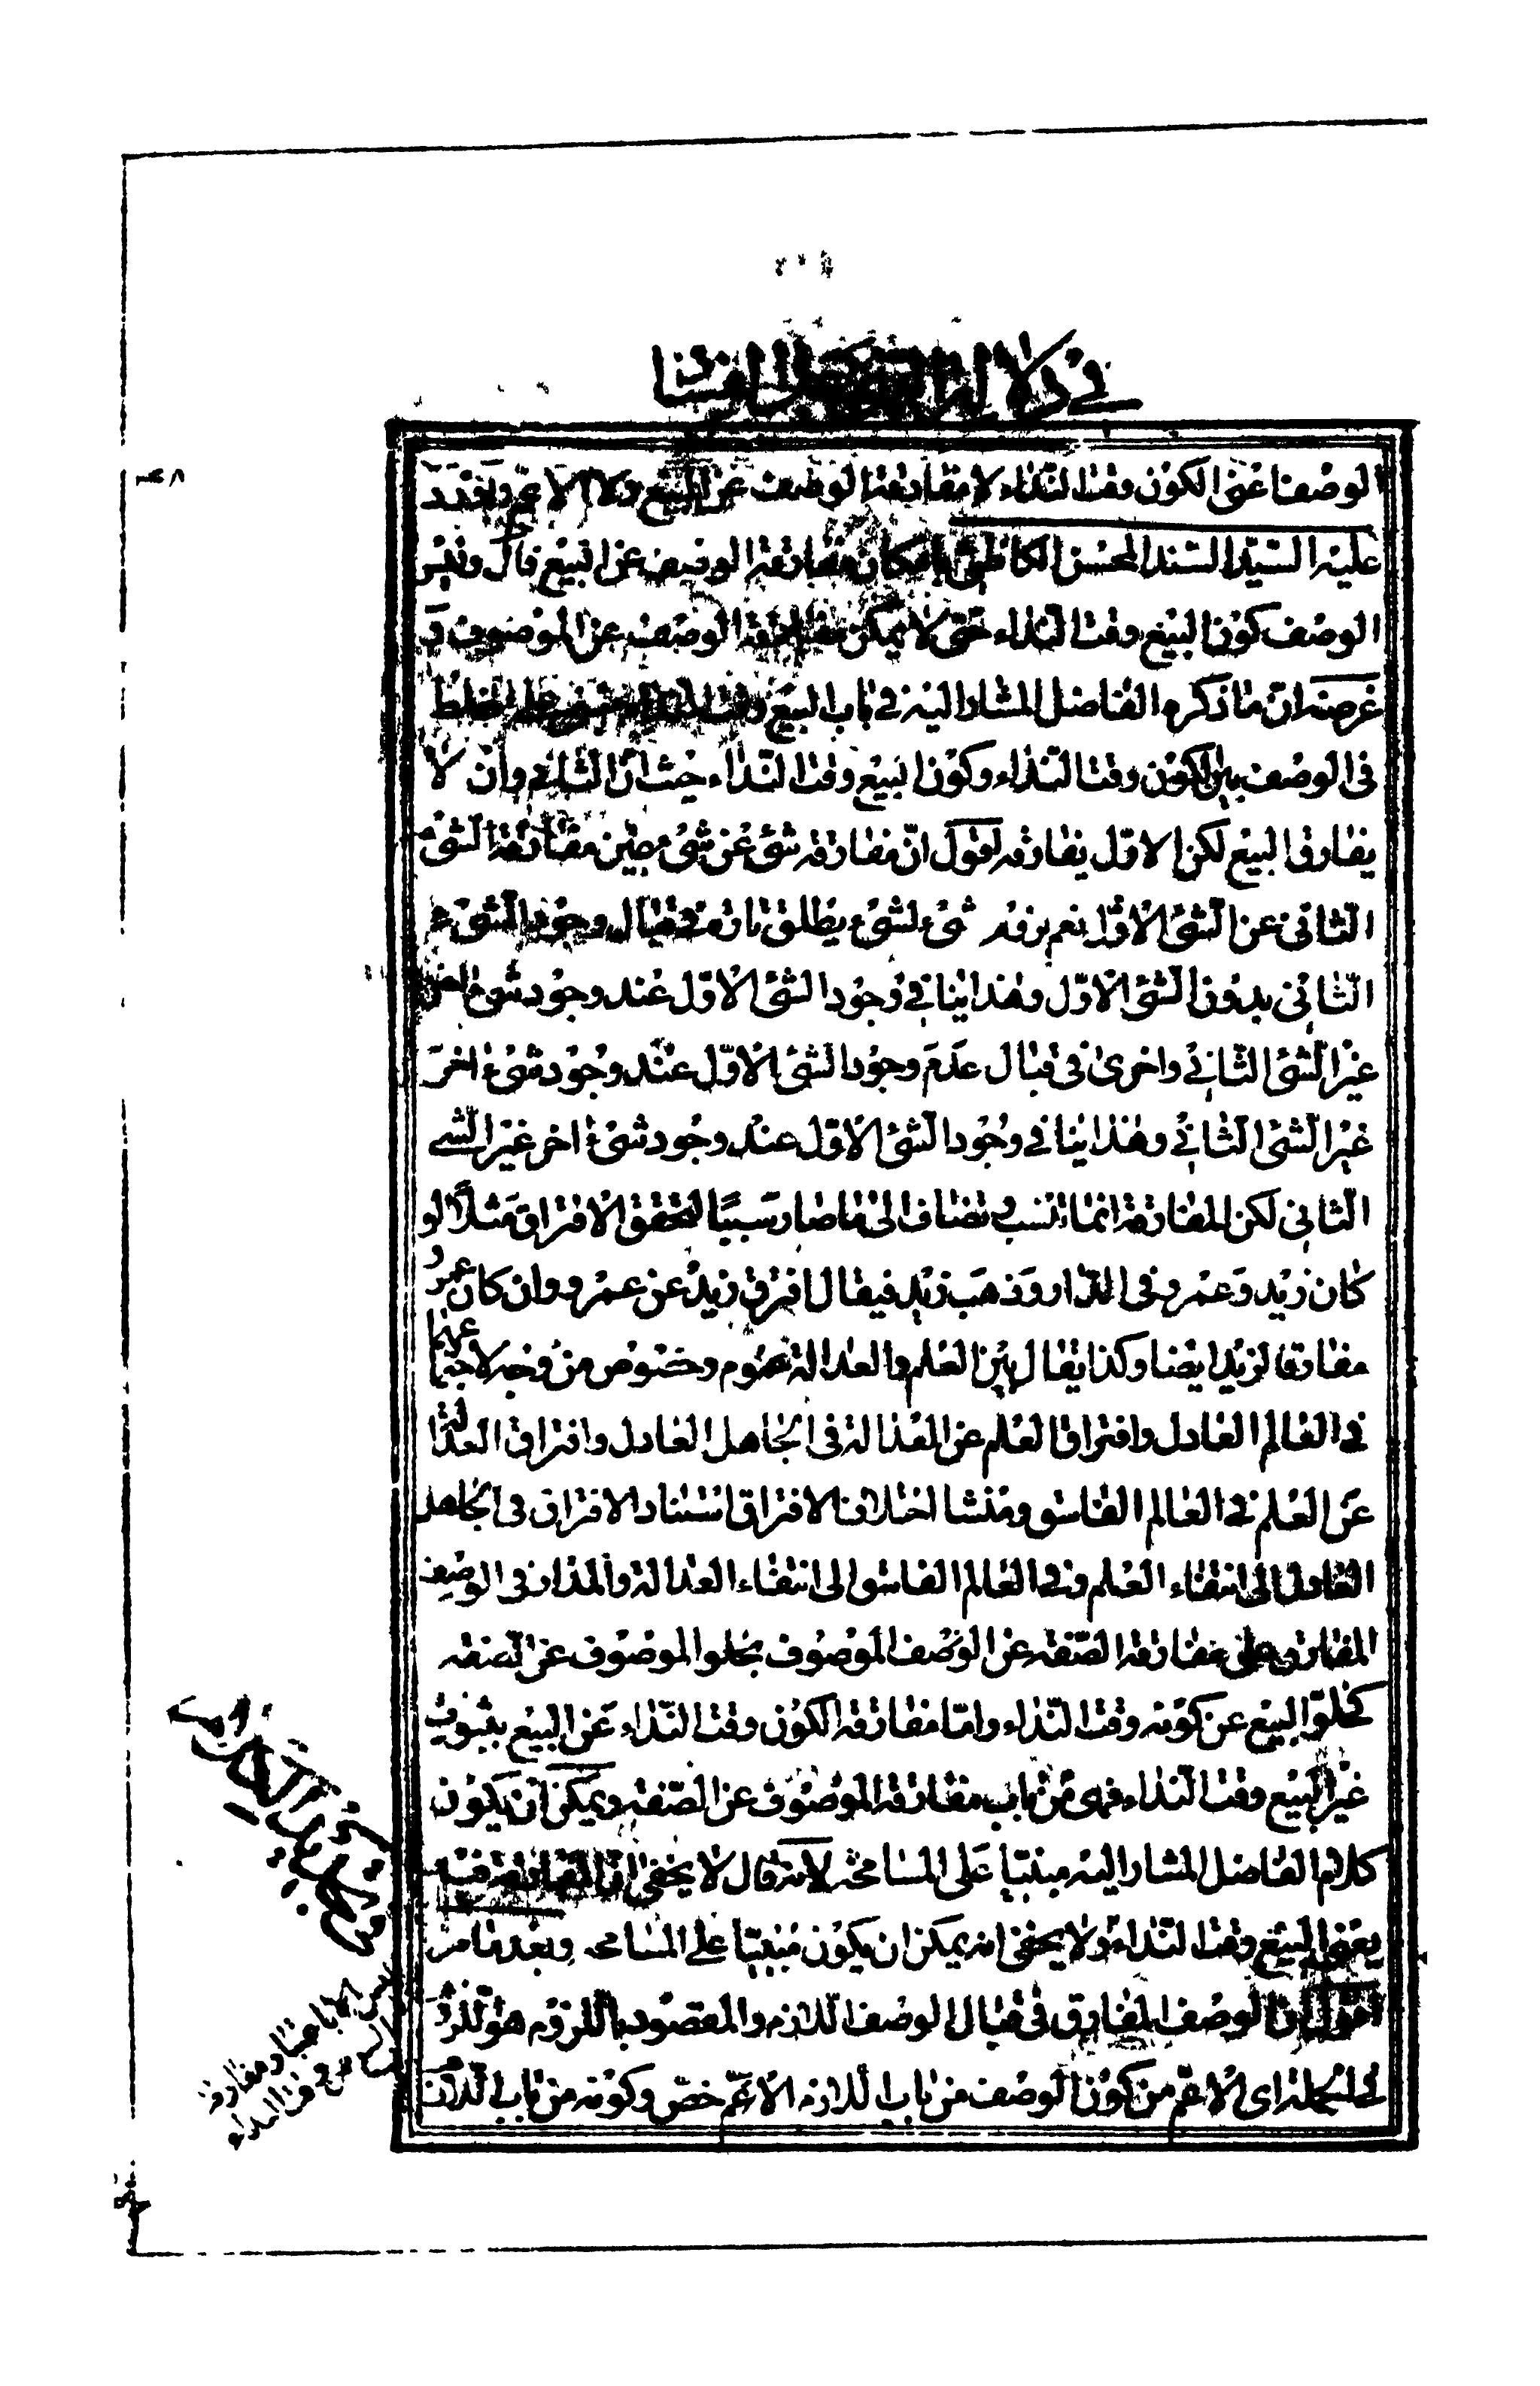 في دلالة النهي على الفساد
الوصف اعنى الكون وقت النداء لا مفارقة الوصف عن البيع ولا الاعم واورد
عليه السيد السند المحسن الكاظمي بامكان مفارقة الوصف عن البيع قال وليس
الوصف كون البيع وقت النداء حتى لا يمكن مفارقة الوصف عن الموصوف و
غرضه ان ما ذكره الفاضل المشار اليه في باب البيع وقت النداء مبنى على الخلط
فى الوصف بين الكون وقت النداء وكون البيع وقت النداء حيث ان الثاني وان لا
يفارق البيع لكن الاول يفارقه اقول ان مفارقة شئ عن شئ مفارقة الشئ
الثانى عن الشئ الاول نعم شئ لشئ يطلق تارة في قبال وجود الشئ
الثانى بدون الشئ الاول وهذا ينافي وجود الشئ الاول عند وجود شئ اخر
غير الشئ الثاني واخرى فى قبال عدم وجود الشئ الاول عند وجود شئ اخر
غير الشئ الثاني وهذا ينافي وجود الشئ الاول عند وجود شئ اخر غير الشئ
الثانى لكن المفارقة انما تنسب و تضاف الى ما صار سببا لتحقق الافتراق مثلا لو
كان زيد وعمرو فى الدار وذهب زيد فيقال افترق زيد عن عمرو وان كان عمرو
مفارقا لزيد ايضا وكذا يقال بين العلم والعدالة عموم وخصوص من وجه لاجتماعهما
في العالم العادل وافتراق العلم عن العدالة فى الجاهل العادل وافتراق العدالة
عن العلم في العالم الفاسق ومنشا اختلاف الافتراق استناد الافتراق فى الجاهل
العادل الى انتفاء العلم وفى العالم الفاسق الى انتفاء العدالة والمدار فى الوصف
المفارق على مفارقة الصفة عن الوصف الموصوف بخلو الموصوف عن الصفة
كخلو البيع عن كونه وقت النداء واما مفارقة الكون وقت النداء عن البيع بثبوت
غير البيع وقت النداء فهى من باب مفارقة الموصوف عن الصفة ويمكن ان يكون
كلام الفاضل المشار اليه مبنيا على المسامحة لانه قال لا يخفى ان المفارقة فيه
يعنى البيع وقت النداء ولا يخفى انه يمكن ان يكون مبنيا على المسامحة وبعد ما مر
اقول ان الوصف المفارق في قبال الوصف اللازم والمقصود باللزوم هو اللزوم
في الجملة اى الاعم من كون الوصف من باب اللازم الاعم خص وكونه من باب اللازم